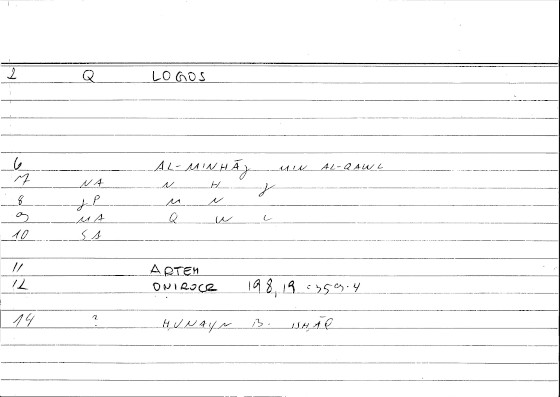 2 Q LOGOS
6 AL-MINHĀJ MIN AL-QAWL
7 NA N H J
8 JP M N
9 MA Q W L
10 SA
11 ARTEM
12 ONIROCR 198,19 = 359.4
14 ? HUNAYN B. ISHĀQ